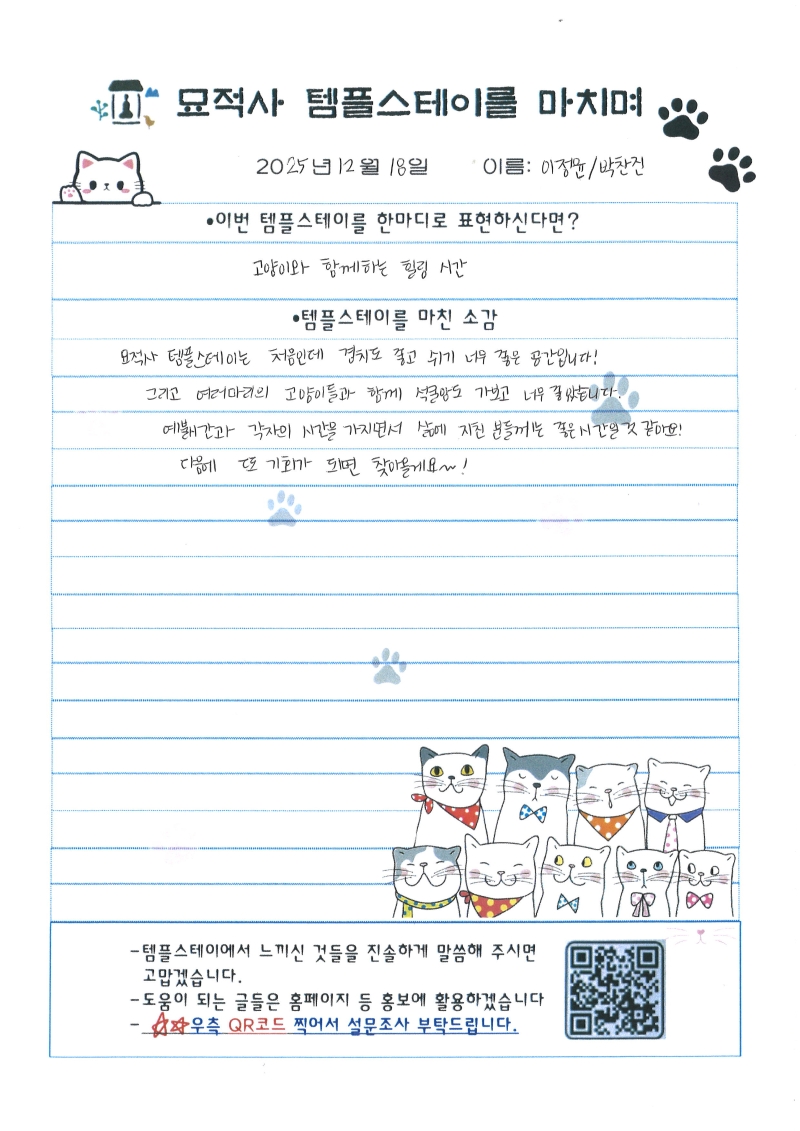 묘적사 템플스테이를 마치며
2025년 12월 18일 이름: 이정윤/박찬진
•이번 템플스테이를 한마디로 표현하신다면?
고양이와 함께하는 힐링 시간
•템플스테이를 마친 소감
묘적사 템플스테이는 처음인데 경치도 좋고 쉬기 너무 좋은 공간입니다!
그리고 여러마리의 고양이들과 함께 석굴암도 가보고 너무 좋았습니다.
예불시간과 각자의 시간을 가지면서 삶에 지친 분들께는 좋은 시간일 것 같아요!
다음에 또 기회가 되면 찾아올게요~!
-템플스테이에서 느끼신 것들을 진솔하게 말씀해 주시면
고맙겠습니다.
-도움이 되는 글들은 홈페이지 등 홍보에 활용하겠습니다
- ☆☆우측 QR코드 찍어서 설문조사 부탁드립니다.